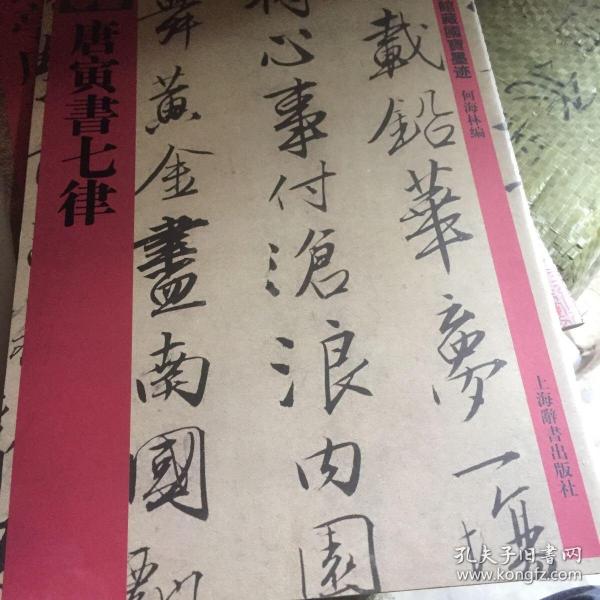 館藏國寶墨迹
何海林编
載鉛華夢一
心事付滄浪内園
黄金盡南國
唐寅書七律
上海辭書出版社
孔夫子旧书网
www.kongfz.com